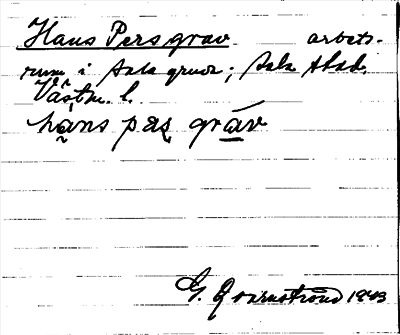 Hans Pers grav arbets-
rum i Sala gruva; Sala stad.
Västm. l.
hans pæʂ grav
G. Qvarnström 1943